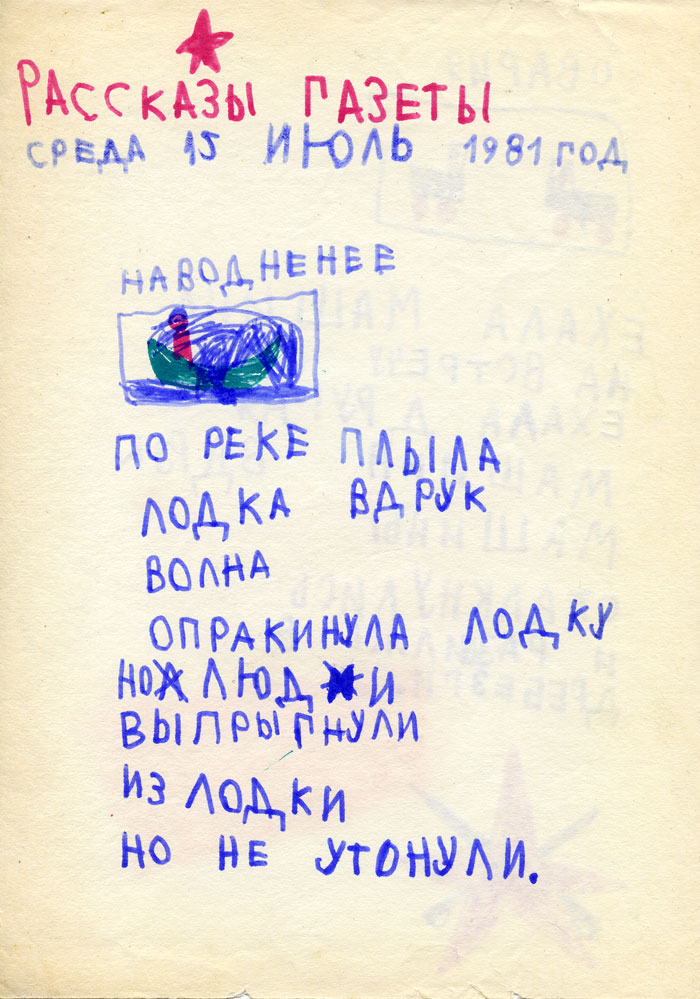 РАССКАЗЫ ГАЗЕТЫ
СРЕДА 15 ИЮЛЬ 1981 ГОД
НАВОДНЕНЕЕ
ПО РЕКЕ ПЛЫЛА
ЛОДКА ВДРУК
ВОЛНА
ОПРАКИНУЛА ЛОДКУ
НО ЛЮДИ
ВЫПРЫГНУЛИ
ИЗ ЛОДКИ
НО НЕ УТОНУЛИ.